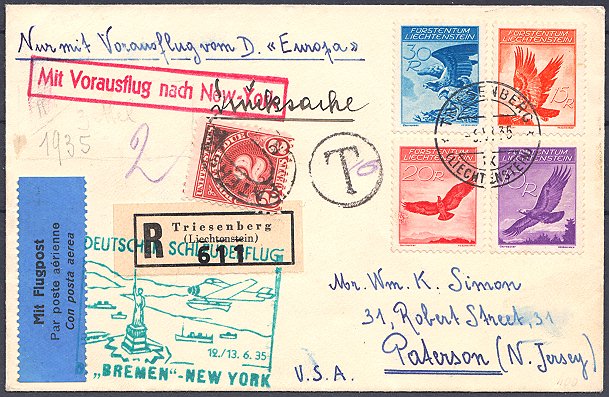 Nur mit Vorausflug vom D. «Europa»
Mit Vorausflug nach New-York
Drucksache
1935
2
T
FÜRSTENTUM
LIECHTENSTEIN
30
R
FÜRSTENTUM
LIECHTENSTEIN
15R
TRIESENBERG
(LIECHTENSTEIN)
FÜRSTENTUM
LIECHTENSTEIN
20R
FÜRSTENTUM
LIECHTENSTEIN
R
R
Triesenberg
(Liechtenstein)
611
Mit Flugpost
Par poste aérienne
Con posta aerea
DEUTSCHER SCHLEUDERFLUG
12./13. 6. 35
D. „BREMEN"-NEW YORK
Mr. Wm. K. Simon
31, Robert Street, 31
Paterson (N. Jersey)
U.S.A.